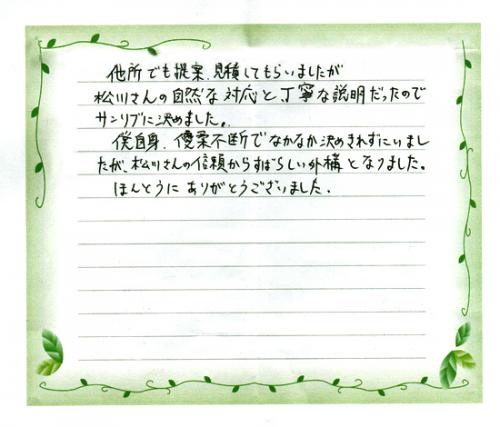 他所でも提案、見積してもらいましたが
松川さんの自然な対応と丁寧な説明だったので
サンリブに決めました。
僕自身、優柔不断でなかなか決めきれずにいまし
たが、松川さんの信頼からすばらしい外構となりました。
ほんとうにありがとうございました。